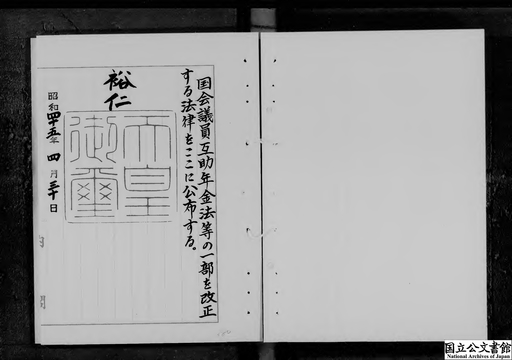 国会議員互助年金法等の一部を改正
する法律をここに公布する。
裕仁
天皇
御璽
昭和四十五年四月三十日
国立公文書館
National Archives of Japan